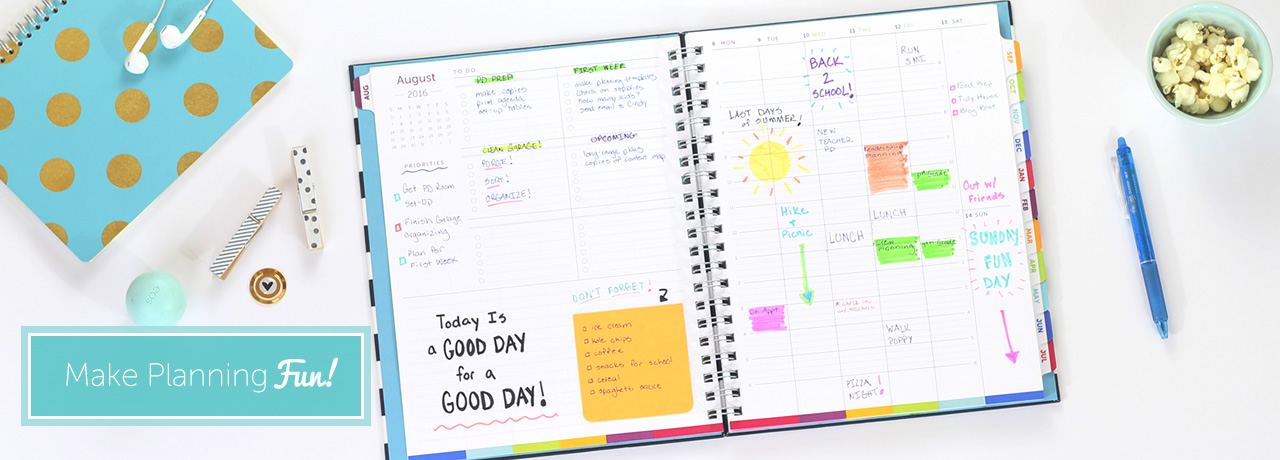 August
2016
S M T W T F S
PRIORITIES
Get PD Room
Set-Up
Finish Garage
organizing
Plan for
First Week
TO DO
PD PREP
make copies
print agenda
set-up tables
CLEAN GARAGE!
PURGE!
SORT!
ORGANIZE!
FIRST WEEK
make planning templates
check on supplies
how many subs?
send email to Cindy
UPCOMING
long-range plans
copies of content map
Today Is
a GOOD DAY
for a
GOOD DAY!
DON'T FORGET!
ice cream
kale chips
coffee
snacks for school
cereal
spaghetti sauce
AUG
8 MON
9 TUE
10 WED
11 THU
12 FRI
13 SAT
BACK
2
SCHOOL!
RUN
5 MI
LAST DAYS
of SUMMER!
NEW
TEACHER
PD
Food Prep
Tidy House
Blog Post
Leadership
Planning
Hike
&
Picnic
LUNCH
LUNCH
Out w/
Friends
14 SUN
SUNDAY
FUN
DAY
Dr. Appt.
WALK
POPPY
PIZZA
NIGHT!
SEP
OCT
NOV
DEC
JAN
FEB
MAR
APR
MAY
JUN
JUL
eos
Make Planning Fun!